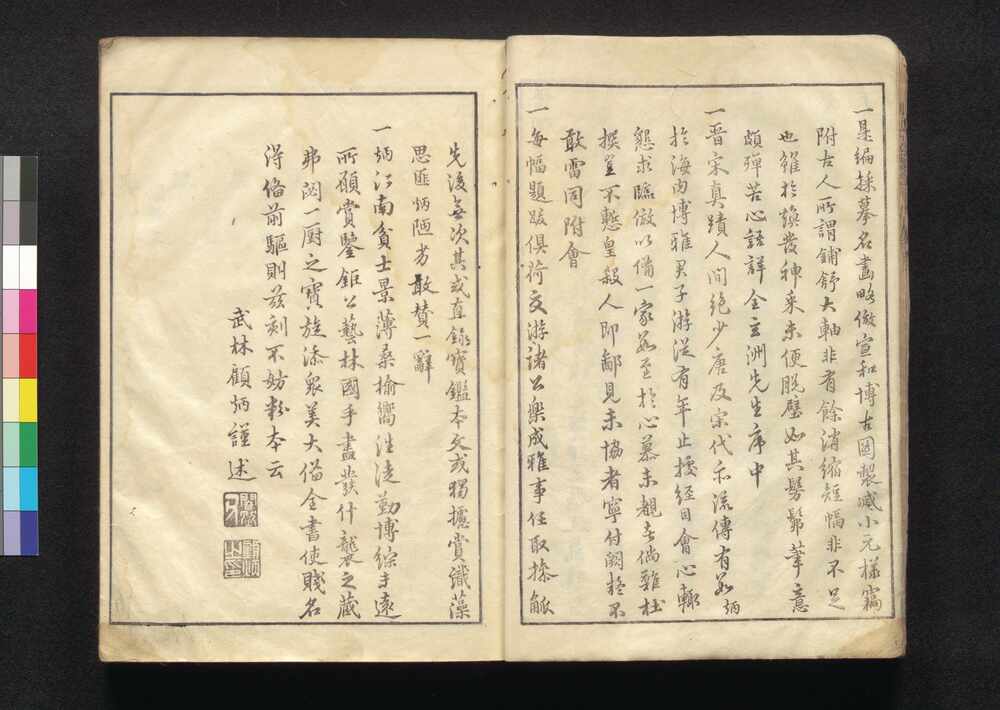 一是編採摹名畫略倣宣和博古圖製減小元樣竊
附古人所謂鋪舒大軸非有餘消縮短幅非不足
也雖於煥發神采未便脫壁如其髣髴筆意
頗殫苦心語詳全玄洲先生序中
一晉宋真蹟人間絕少唐及宋代亦流傳有數炳
於海內博雅君子游從有年止據經目會心輒
懇求臨倣以備一家若至於心慕未覩者倘難杜
撰豈不懸皇殺人即鄙見未協者寧付闕疑不
敢雷同附會
一每幅題跋俱荷交游諸公樂成雅事任取操觚
先後無次其或直錄寶鑑本文或獨攄賞識藻
思匪炳陋劣敢贊一辭
一炳江南貧士景薄桑榆嚮往徒勤博綜未遠
所願賞鑒鉅公藝林國手盡發什襲之藏
弗閟一廚之寶旋添眾美大備全書使賤名
得俻前驅則茲刻不妨粉本云
武林顧炳謹述